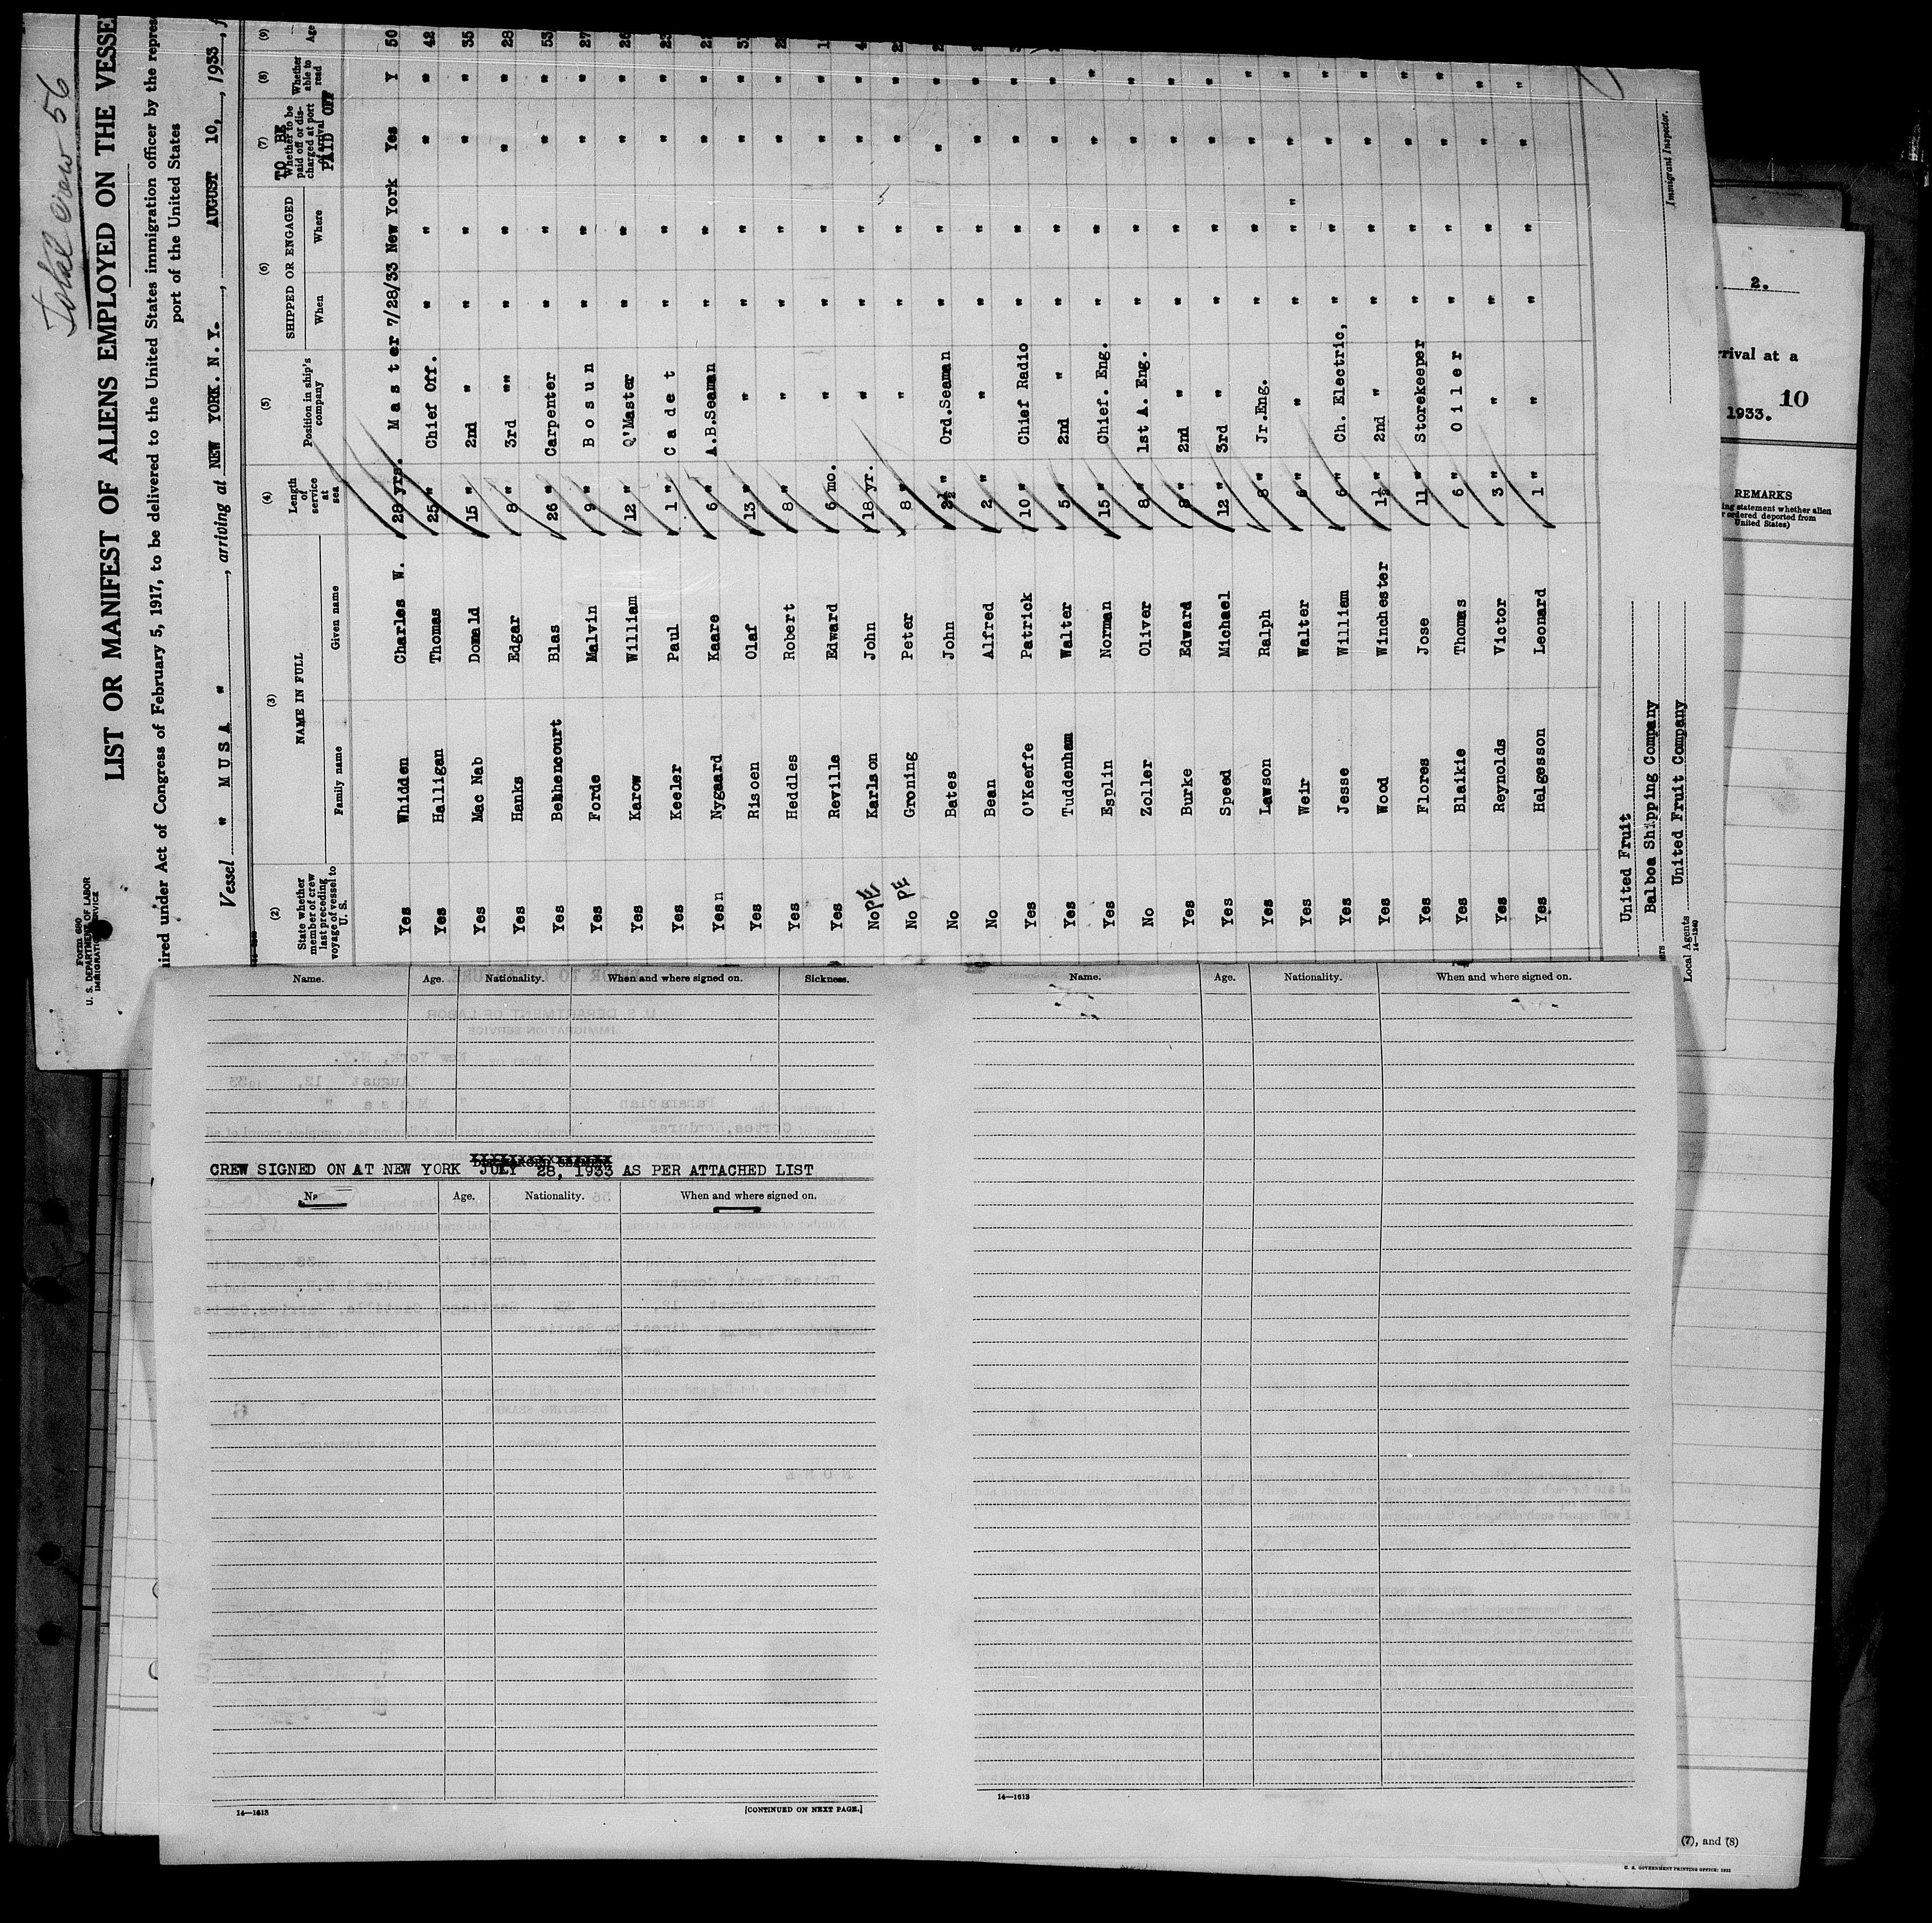 Total Crew 56
Form 680
U. S. DEPARTMENT OF LABOR
IMMIGRATION SERVICE
LIST OR MANIFEST OF ALIENS EMPLOYED ON THE VESSE
ired under Act of Congress of February 5, 1917, to be delivered to the United States immigration officer by the represe
port of the United States
Vessel " MUSA " , arriving at NEW YORK. N. Y. , AUGUST 10, , 1933, f
(2) (3) (4) (5) (6) (7) (8) (9)
State whether member of crew last preceding voyage of vessel to U. S. NAME IN FULL Family name Given name Length of service at sea Position in ship's company SHIPPED OR ENGAGED When Where TO BE Whether to be paid off or discharged at port of arrival PAID OFF Whether able to read Age
Yes Whidden Charles W. 28 yrs. Master 7/28/33 New York Yes Y 50
Yes Halligan Thomas 25 " Chief Off. " " " " 42
Yes Mac Nab Donald 15 " 2nd " " " " " 35
Yes Hanks Edgar 8 " 3rd "" " " " " 28
Yes Bethencourt Blas 26 " Carpenter " " " " 53
Yes Forde Malvin 9 " Bosun " " " " 27
Yes Karow William 12 " Q'Master " " " " 26
Yes Keeler Paul 1 " Cadet " " " "
Yes n Nygaard Kaare 6 " A.B.Seaman " " " "
Yes Risoen Olaf 13 " " " " " "
Yes Heddles Robert 8 " " " " " "
Yes Reville Edward 6 mo. " " " " "
No PE Karlson John 18 yr. " " " " "
No PE Groning Peter 8 " " " " " "
No Bates John 2½ " Ord.Seaman " " " "
No Bean Alfred 2 " " " " " "
Yes O'Keeffe Patrick 10 " Chief Radio " " " "
Yes Tuddenham Walter 5 " 2nd " " " " "
Yes Esplin Norman 15 " Chief. Eng. " " " "
No Zoller Oliver 8 " 1st A. Eng. " " " "
Yes Burke Edward 8 " 2nd " " " " "
Yes Speed Michael 12 " 3rd " " " " "
Yes Lawson Ralph 8 " Jr.Eng. " " " "
Yes Weir Walter 6 " " " " " " "
Yes Jesse William 6 " Ch. Electric, " " " "
Yes Wood Winchester 1½ " 2nd " " " " "
Yes Flores Jose 11 " Storekeeper " " " "
Yes Blaikie Thomas 6 " Oiler " " " "
Yes Reynolds Victor 3 " " " " " "
Yes Helgesson Leonard 1 " " " " " "
United Fruit
Balboa Shipping Company
Local Agents United Fruit Company
14—1240
Immigrant Inspector.
2.
rrival at a
10
1933.
REMARKS
ing statement whether alien
r ordered deported from
United States)
Name. Age. Nationality. When and where signed on. Sickness.
CREW SIGNED ON AT NEW YORK JULY 28, 1933 AS PER ATTACHED LIST
Age. Nationality. When and where signed on.
14—1613 [CONTINUED ON NEXT PAGE.]
Name. Age. Nationality. When and where signed on.
14—1613
(7), and (8)
U. S. GOVERNMENT PRINTING OFFICE: 1932